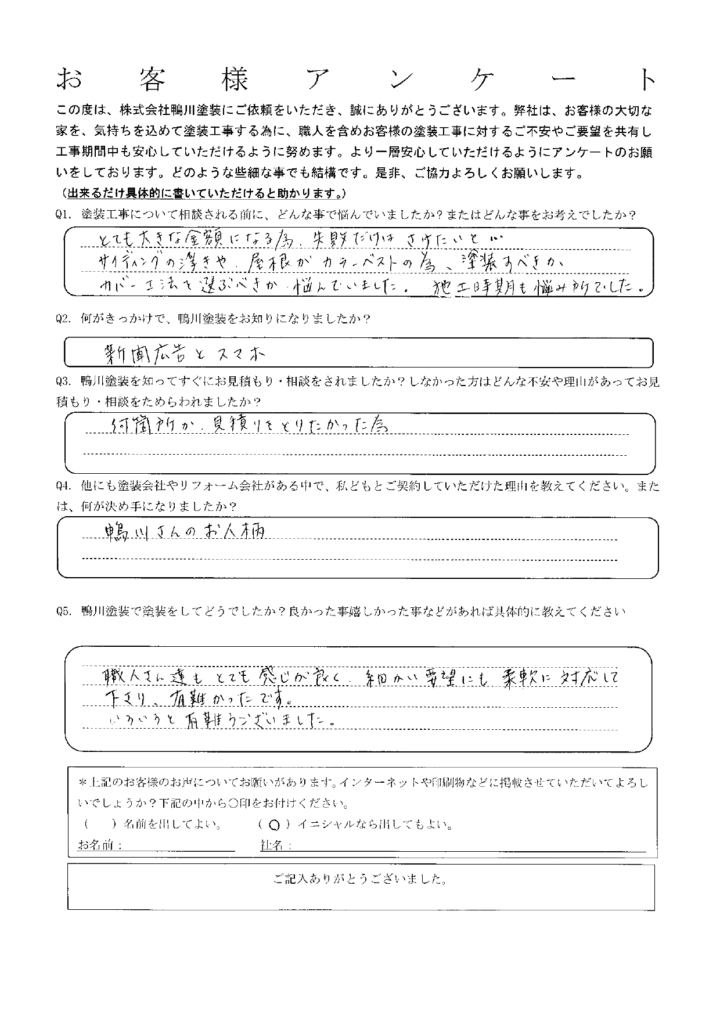 お客様アンケート
この度は、株式会社鴨川塗装にご依頼をいただき、誠にありがとうございます。弊社は、お客様の大切な
家を、気持ちを込めて塗装工事する為に、職人を含めお客様の塗装工事に対するご不安やご要望を共有し
工事期間中も安心していただけるように努めます。より一層安心していただけるようにアンケートのお願
いをしております。どのような些細な事でも結構です。是非、ご協力よろしくお願いします。
（出来るだけ具体的に書いていただけると助かります。）
Q1. 塗装工事について相談される前に、どんな事で悩んでいましたか？またはどんな事をお考えでしたか？
とても大きな金額になる為、失敗だけは さけたいと…
サイディングの浮きや、屋根が カラーベストの為、塗装すべきか、
カバー工法を選ぶべきか 悩んでいました。 施工時期も悩み所でした。
Q2. 何がきっかけで、鴨川塗装をお知りになりましたか？
新聞広告と スマホ
Q3. 鴨川塗装を知ってすぐにお見積もり・相談をされましたか？しなかった方はどんな不安や理由があってお見
積もり・相談をためらわれましたか？
何箇所か、見積りをとりたかった為
Q4. 他にも塗装会社やリフォーム会社がある中で、私どもとご契約していただけた理由を教えてください。また
は、何が決め手になりましたか？
鴨川さんのお人柄
Q5. 鴨川塗装で塗装をしてどうでしたか？良かった事嬉しかった事などがあれば具体的に教えてください
職人さん達も とても 感じが良く、細かい要望にも 柔軟に対応して
下さり、有難かったです。
いろいろと有難うございました。
＊上記のお客様のお声についてお願いがあります。インターネットや印刷物などに掲載させていただいてよろし
いでしょうか？下記の中から〇印をお付けください。
（ ）名前を出してよい。 （〇）イニシャルなら出してもよい。
お名前： 社名：
ご記入ありがとうございました。